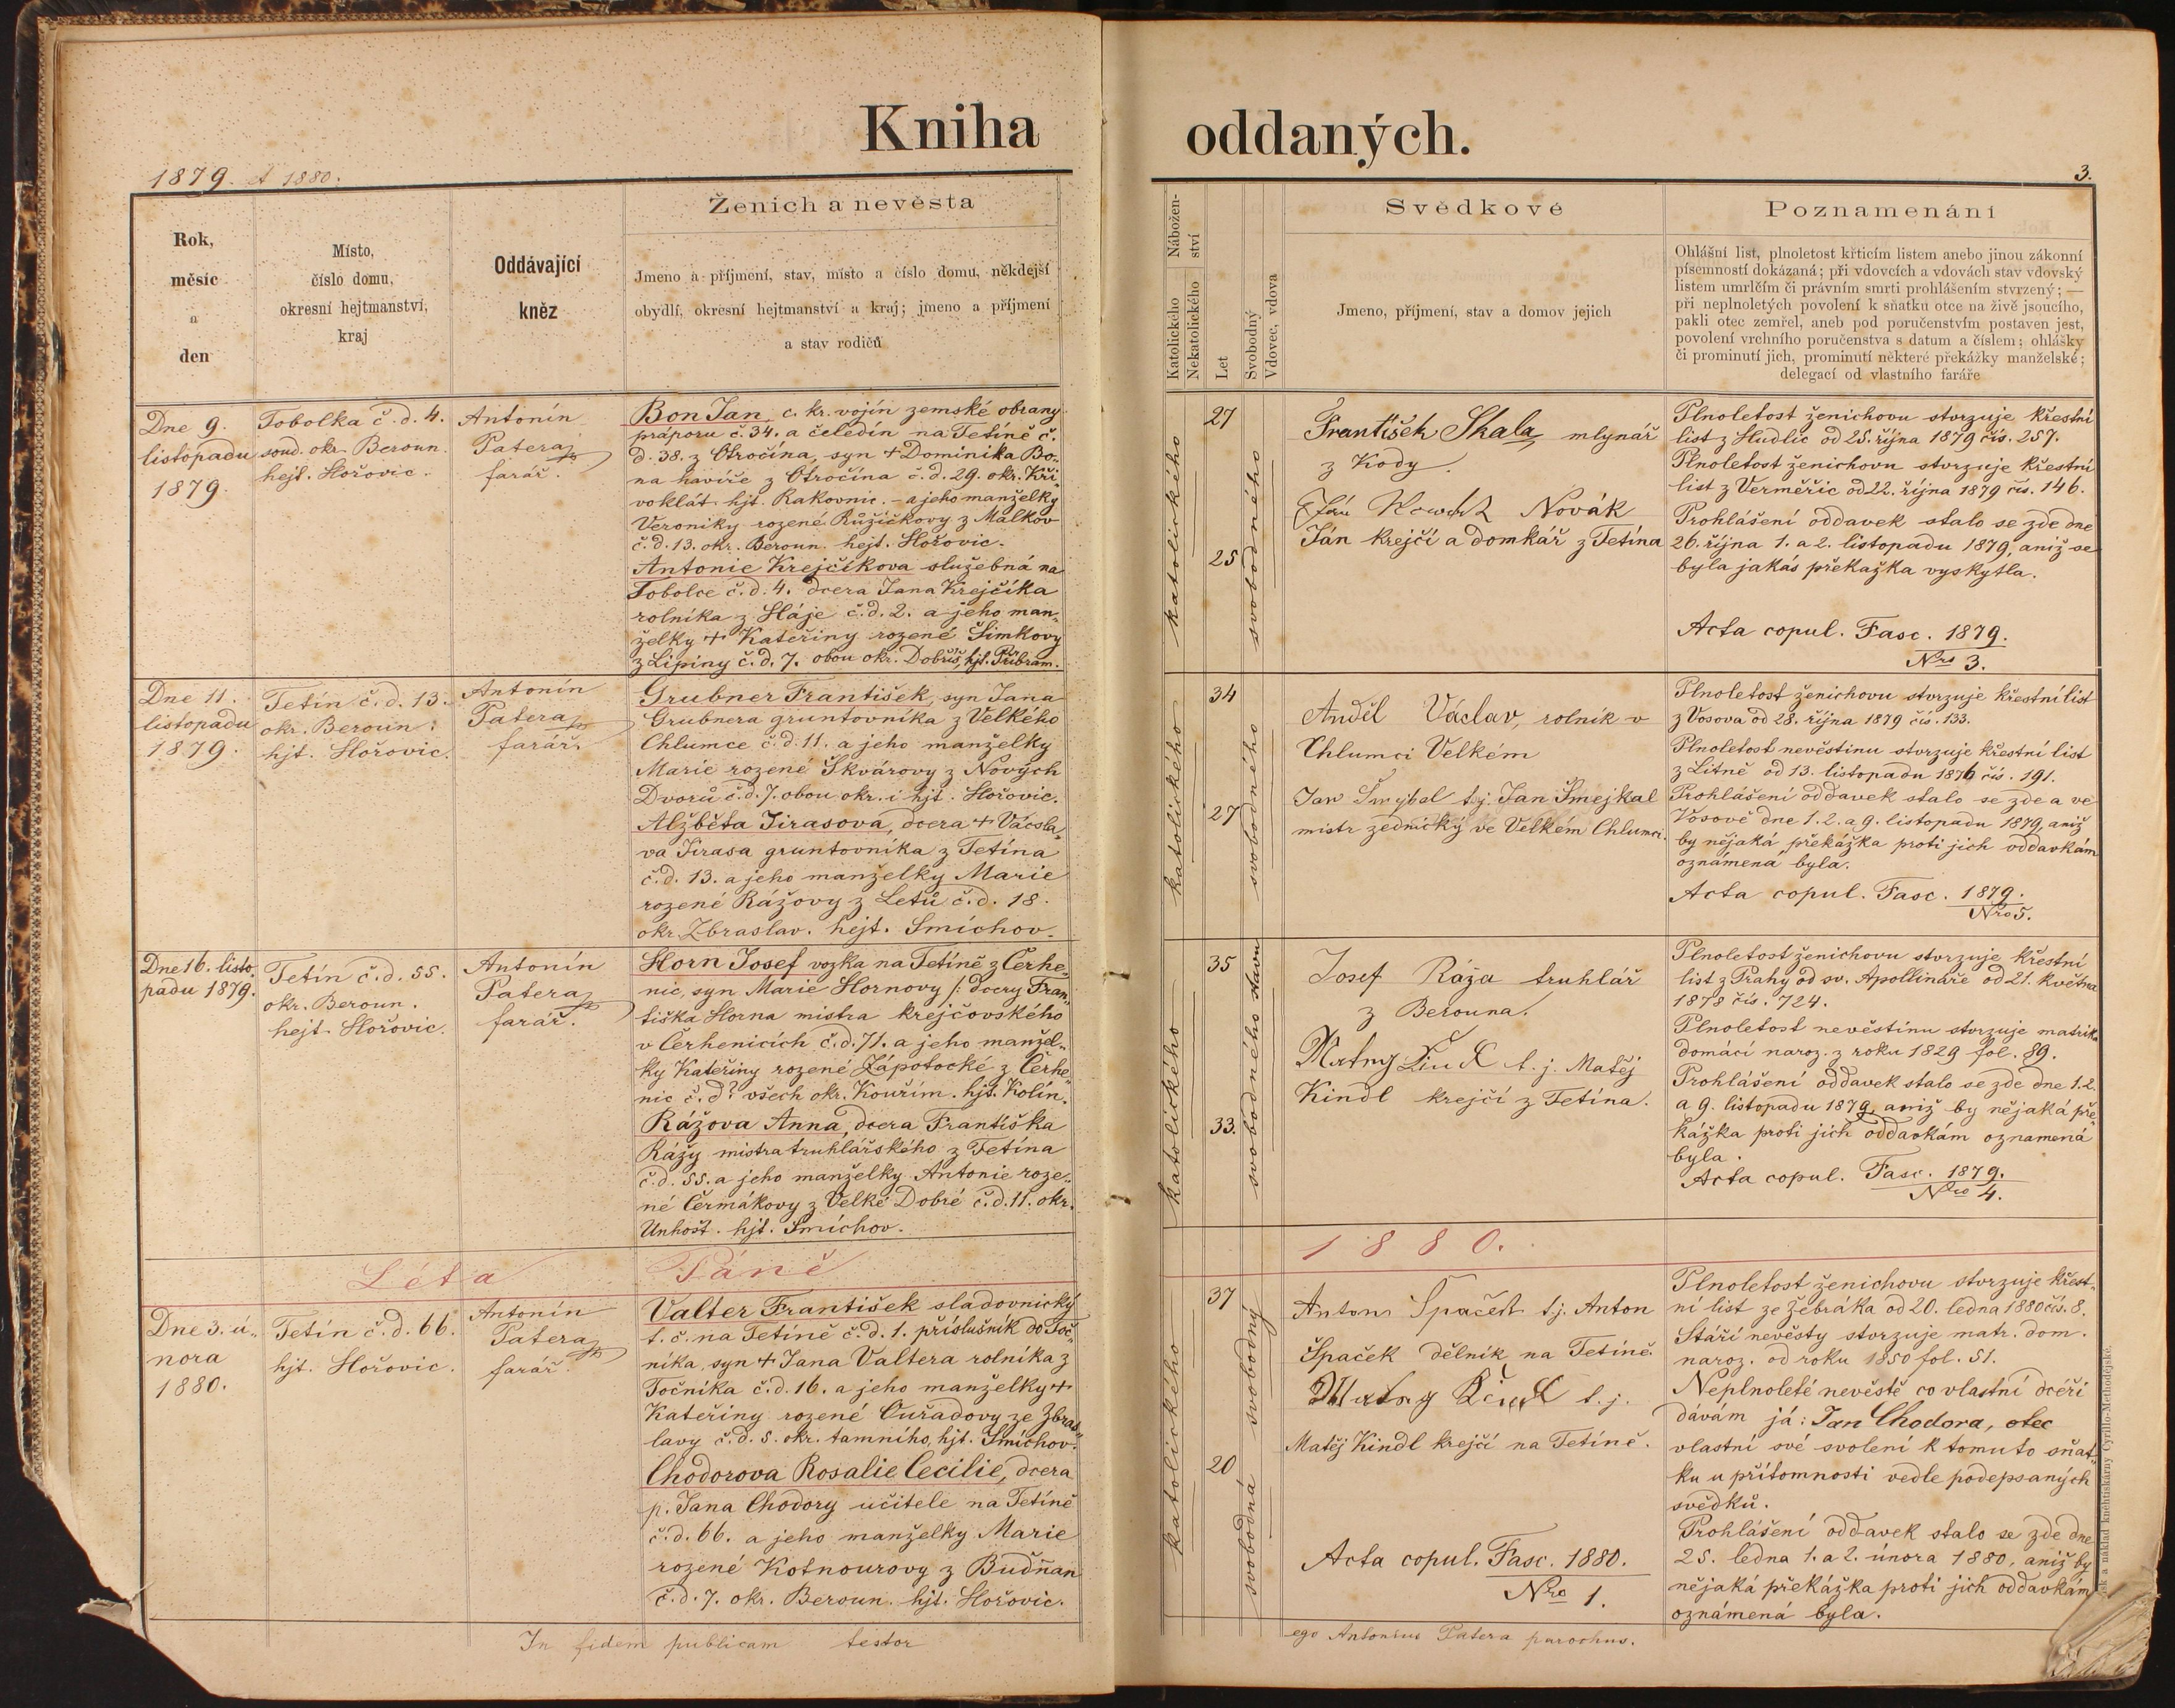 Kniha oddaných.
1879. et 1880.
3.
Rok,
měsíc
a
den
Místo,
číslo domu,
okresní hejtmanství,
kraj
Oddávající
kněz
Ženich a nevěsta
Jmeno a příjmení, stav, místo a číslo domu, někdejší
obydlí, okresní hejtmanství a kraj; jmeno a příjmení
a stav rodičů
Nábožen-
ství
Katolického
Nekatolického
Let
Svobodný
Vdovec, vdova
Svědkové
Jmeno, příjmení, stav a domov jejich
Poznamenání
Ohlášní list, plnoletost křticím listem anebo jinou zákonní
písemností dokázaná; při vdovcích a vdovách stav vdovský
listem umrlčím či právním smrti prohlášením stvrzený; —
při neplnoletých povolení k sňatku otce na živě jsoucího,
pakli otec zemřel, aneb pod poručenstvím postaven jest,
povolení vrchního poručenstva s datum a číslem; ohlášky
či prominutí jich, prominutí některé překážky manželské;
delegací od vlastního faráře
Dne 9.
listopadu
1879.
Tobolka č. d. 4.
soud. okr. Beroun.
hejt. Hořovic.
Antonín
Patera
farář.
Bon Jan, c. kr. vojín zemské obrany
práporu č. 34. a čeledín na Tetíně č.
d. 38. z Otročína, syn + Dominika Bo-
na havíře z Otročína č. d. 29. okr. Kři-
voklát. hjt. Rakovnic. - a jeho manželky
Veroniky rozené Růžičkovy z Malkov
č. d. 13. okr. Beroun. hejt. Hořovic.
Antonie Krejčíkova služebná na
Tobolce č. d. 4. dcera Jana Krejčíka
rolníka z Háje č. d. 2. a jeho man-
želky + Kateřiny rozené Šimkovy
z Lipiny č. d. 7. obou okr. Dobříš, hjt. Příbram.
katolického
27
25
svobodného
František Skala, mlynář
z Kody.
Novák
Ján krejčí a domkář z Tetína
Plnoletost ženichovu stvrzuje křestní
list z Hudlic od 25. října 1879 čís. 257.
Plnoletost ženichovu stvrzuje křestní
list z Verměřic od 22. října 1879 čís. 146.
Prohlášení oddavek stalo se zde dne
26. října 1. a 2. listopadu 1879, aniž se
byla jakás překažka vyskytla.
Acta copul. Fasc. 1879.
Nro 3.
Dne 11.
listopadu
1879.
Tetín č. d. 13.
okr. Beroun.
hjt. Hořovic.
Antonín
Patera
farář.
Grubner František, syn Jana
Grubnera gruntovníka z Velkého
Chlumce č. d. 11. a jeho manželky
Marie rozené Škvárovy z Nových
Dvorů č. d. 7. obou okr. i hjt. Hořovic.
Alžběta Jirasová, dcera + Vácsla-
va Jirasa gruntovníka z Tetína
č. d. 13. a jeho manželky Marie
rozené Rážovy z Letů č. d. 18.
okr. Zbraslav. hejt. Smíchov.
katolického
34
27
svobodného
Anděl Václav, rolník v
Chlumci Velkém
Jan t. j. Jan Šmejkal
mistr zednický ve Velkém Chlumci.
Plnoletost ženichovu stvrzuje křestní list
z Vosova od 28. října 1879 čís. 133.
Plnoletost nevěstinu stvrzuje křestní list
z Litně od 13. listopadu 1876 čís. 191.
Prohlášení oddavek stalo se zde a ve
Vosově dne 1. 2. a 9. listopadu 1879, aniž
by nějaká překážka proti jich oddavkám
oznámená byla.
Acta copul. Fasc. 1879.
Nro 5.
Dne 16. listo-
padu 1879.
Tetín č. d. 55.
okr. Beroun.
hejt. Hořovic.
Antonín
Patera
farář.
Horn Josef vozka na Tetíně z Čerhe-
nic, syn Marie Hornovy /: dcery Fran-
tiška Horna mistra krejčovského
v Čerhenicích č. d. 71. a jeho manžel-
ky Kateřiny rozené Zápotocké z Čerhe-
nic č. d? všech okr. Kouřim. hjt. Kolín.
Rážova Anna, dcera Františka
Ráží mistra truhlářského z Tetína
č. d. 55. a jeho manželky Antonie roze-
né Čermákovy z Velké Dobré č. d. 11. okr.
Unhošť. hjt. Smíchov.
katolického
35
33.
svobodného stavu
Josef Ráža truhlář
z Berouna.
t. j. Matěj
Kindl krejčí z Tetína.
Plnoletost ženichovu stvrzuje křestní
list z Prahy od sv. Apollináře od 21. května
1878 čís. 724.
Plnoletost nevěstinu stvrzuje matrika
domácí naroz. z roku 1829 fol. 89.
Prohlášení oddavek stalo se zde dne 1. 2.
a 9. listopadu 1879, aniž by nějaká pře-
kážka proti jich oddavkám oznamená
byla.
Acta copul. Fasc. 1879.
Nro 4.
Léta Páně 1880.
Dne 3. ú-
nora
1880.
Tetín č. d. 66.
hjt. Hořovic.
Antonín
Patera
farář.
Valter František sladovnický
t. č. na Tetíně č. d. 1. příslušník do Toč-
níka, syn + Jana Valtera rolníka z
Točníka č. d. 16. a jeho manželky +
Kateřiny rozené Ouřadovy ze Zbras-
lavy č. d. 5. okr. tamního, hjt. Smíchov.
Chodorova Rosalie Cecilie, dcera
p. Jana Chodory učitele na Tetíně
č. d. 66. a jeho manželky Marie
rozené Kotnourovy z Budňan
č. d. 7. okr. Beroun. hjt. Hořovic.
katolického
37
20
svobodný
svobodná
Anton Špaček t. j. Anton
Špaček dělník na Tetíně.
t. j.
Matěj Kindl krejčí na Tetíně.
Acta copul. Fasc. 1880.
Nro 1.
Plnoletost ženichovu stvrzuje křest-
ní list ze Žebráka od 20. ledna 1880 čís. 8.
Stáří nevěsty stvrzuje matr. dom.
naroz. od roku 1850 fol. 51.
Neplnoleté nevěstě co vlastní dcéři
dávám já: Jan Chodora, otec
vlastní své svolení k tomuto sňat-
ku u přítomnosti vedle podepsaných
svědků.
Prohlášení oddavek stalo se zde dne
25. ledna 1. a 2. února 1880, aniž by
nějaká překážka proti jich oddavkám
oznámená byla.
In fidem publicam testor ego Antonius Patera parochus.
a náklad knihtiskárny Cyrillo-Methodějské.